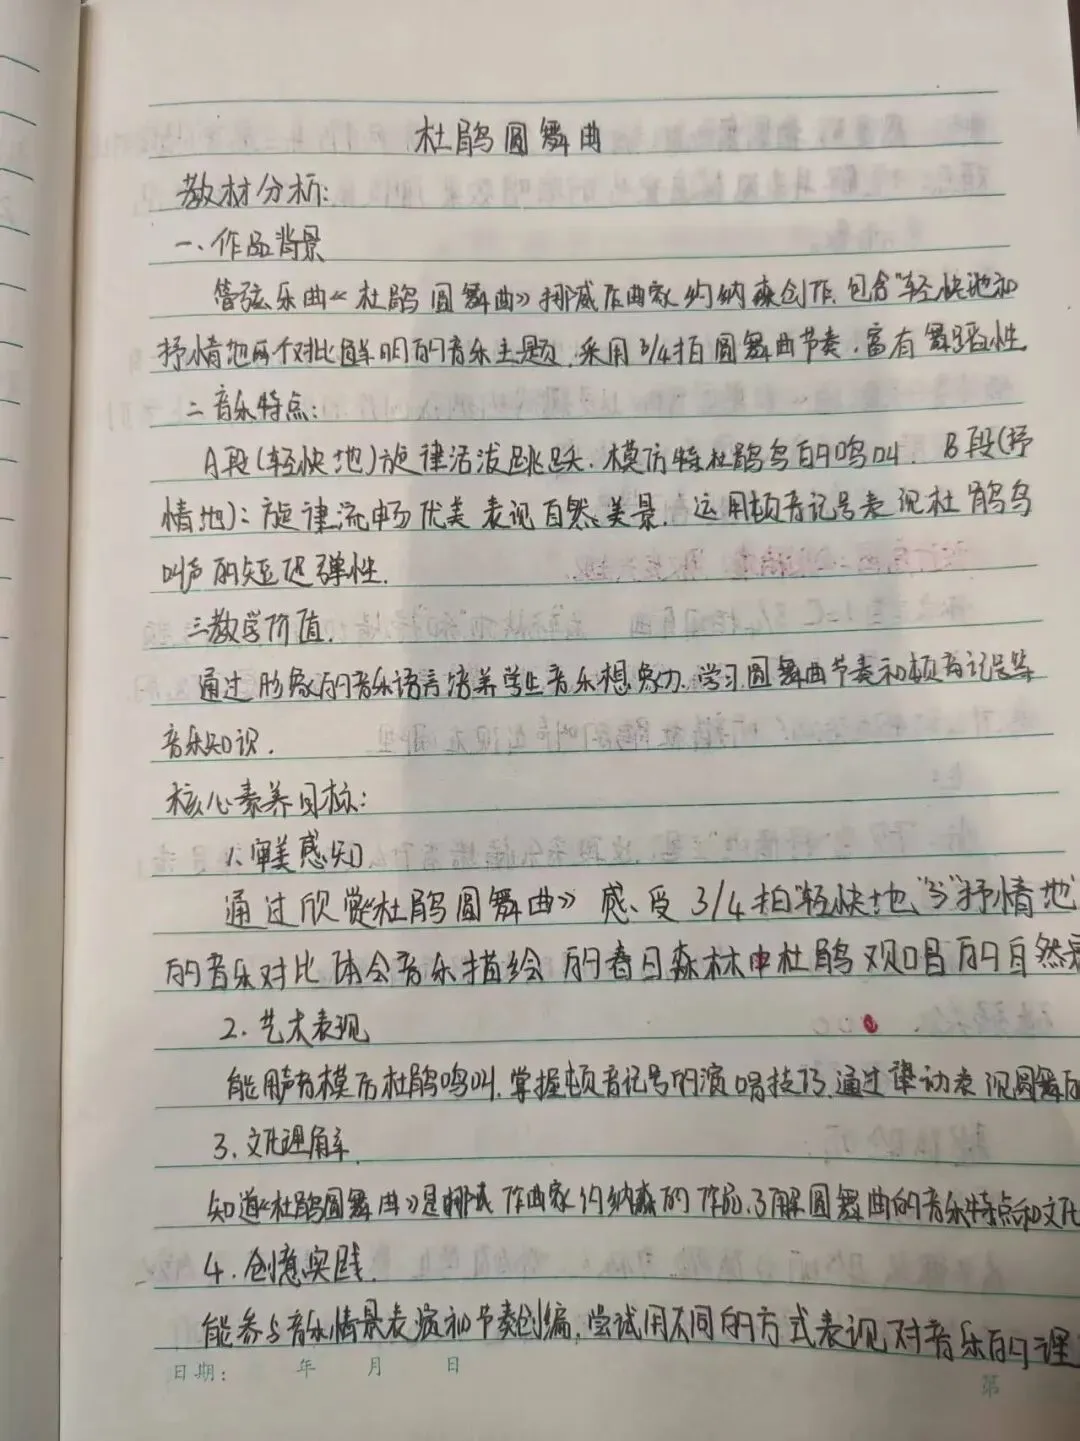 杜鹃圆舞曲
教材分析:
一、作品背景
管弦乐曲《杜鹃圆舞曲》挪威作曲家约纳森创作,包含"轻快地和
抒情地两个对比鲜明的音乐主题,采用3/4拍圆舞曲节奏,富有舞蹈性
二音乐特点:
A段(轻快地)旋律活泼跳跃.模仿特杜鹃鸟的鸣叫. B段(抒
情地):旋律流畅优美表现自然美景.运用顿音记号表现杜鹃鸟
叫声的短促弹性.
三教学价值.
通过形象的音乐语言培养学生音乐想象力.学习圆舞曲节奏和顿音记号等
音乐知识.
核心素养目标:
1、审美感知
通过欣赏《杜鹃圆舞曲》感受3/4拍"轻快地"与"抒情地
的音乐对比体会音乐描绘的春日森林中杜鹃欢唱的自然
2.艺术表现
能用声音模仿杜鹃鸣叫.掌握顿音记号的演唱技巧.通过律动表现圆舞的
3.文化理解
知道《杜鹃圆舞曲》是挪威作曲家约纳森的作品.了解圆舞曲的音乐特点和文化
4.创意实践.
能参与音乐情景表演和节奏创编,尝试用不同的方式表现对音乐的理
日期: 年 月 日
第